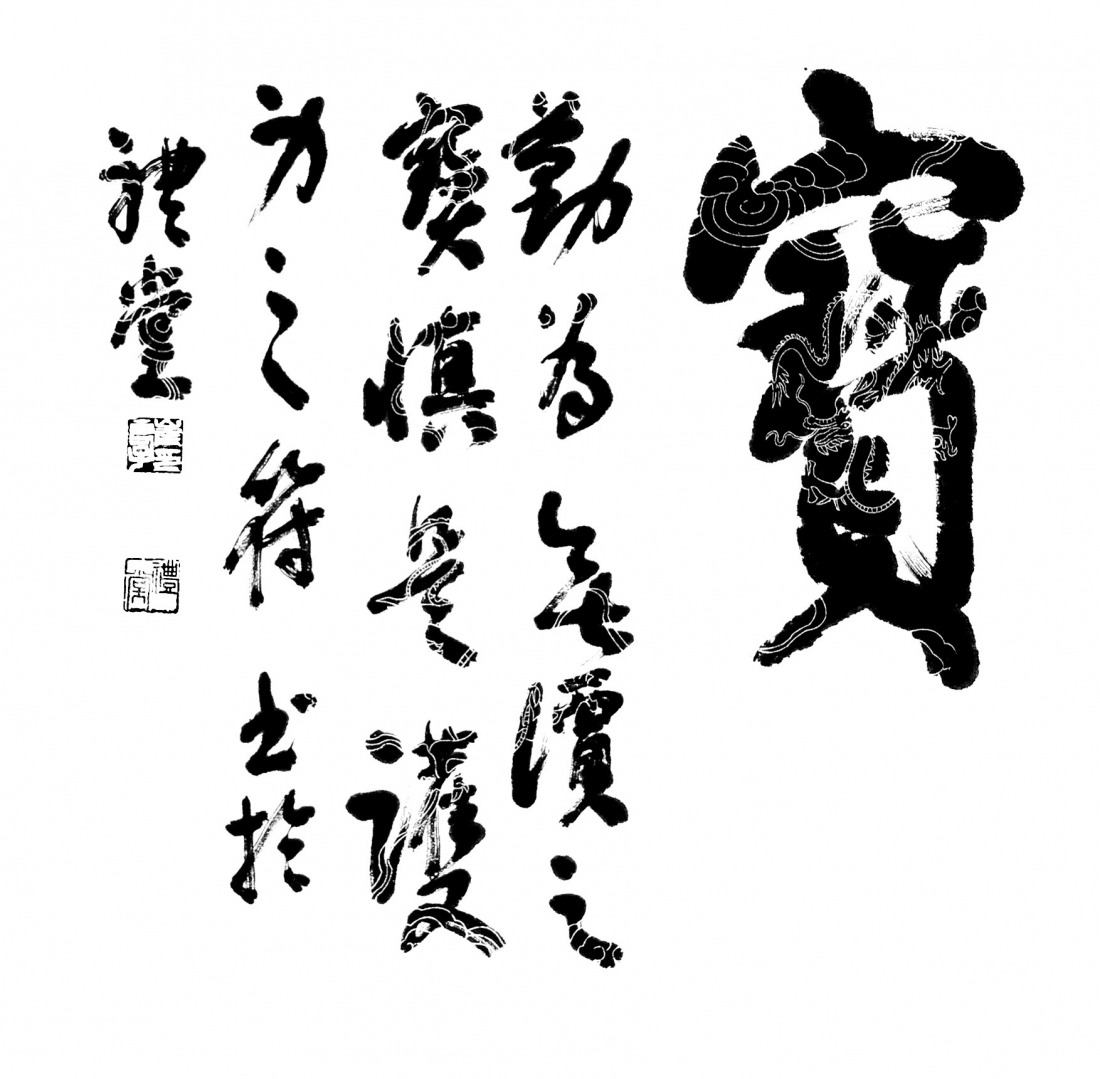 寶
勤為無價之
寶慎是護
身之符 书於
禮堂